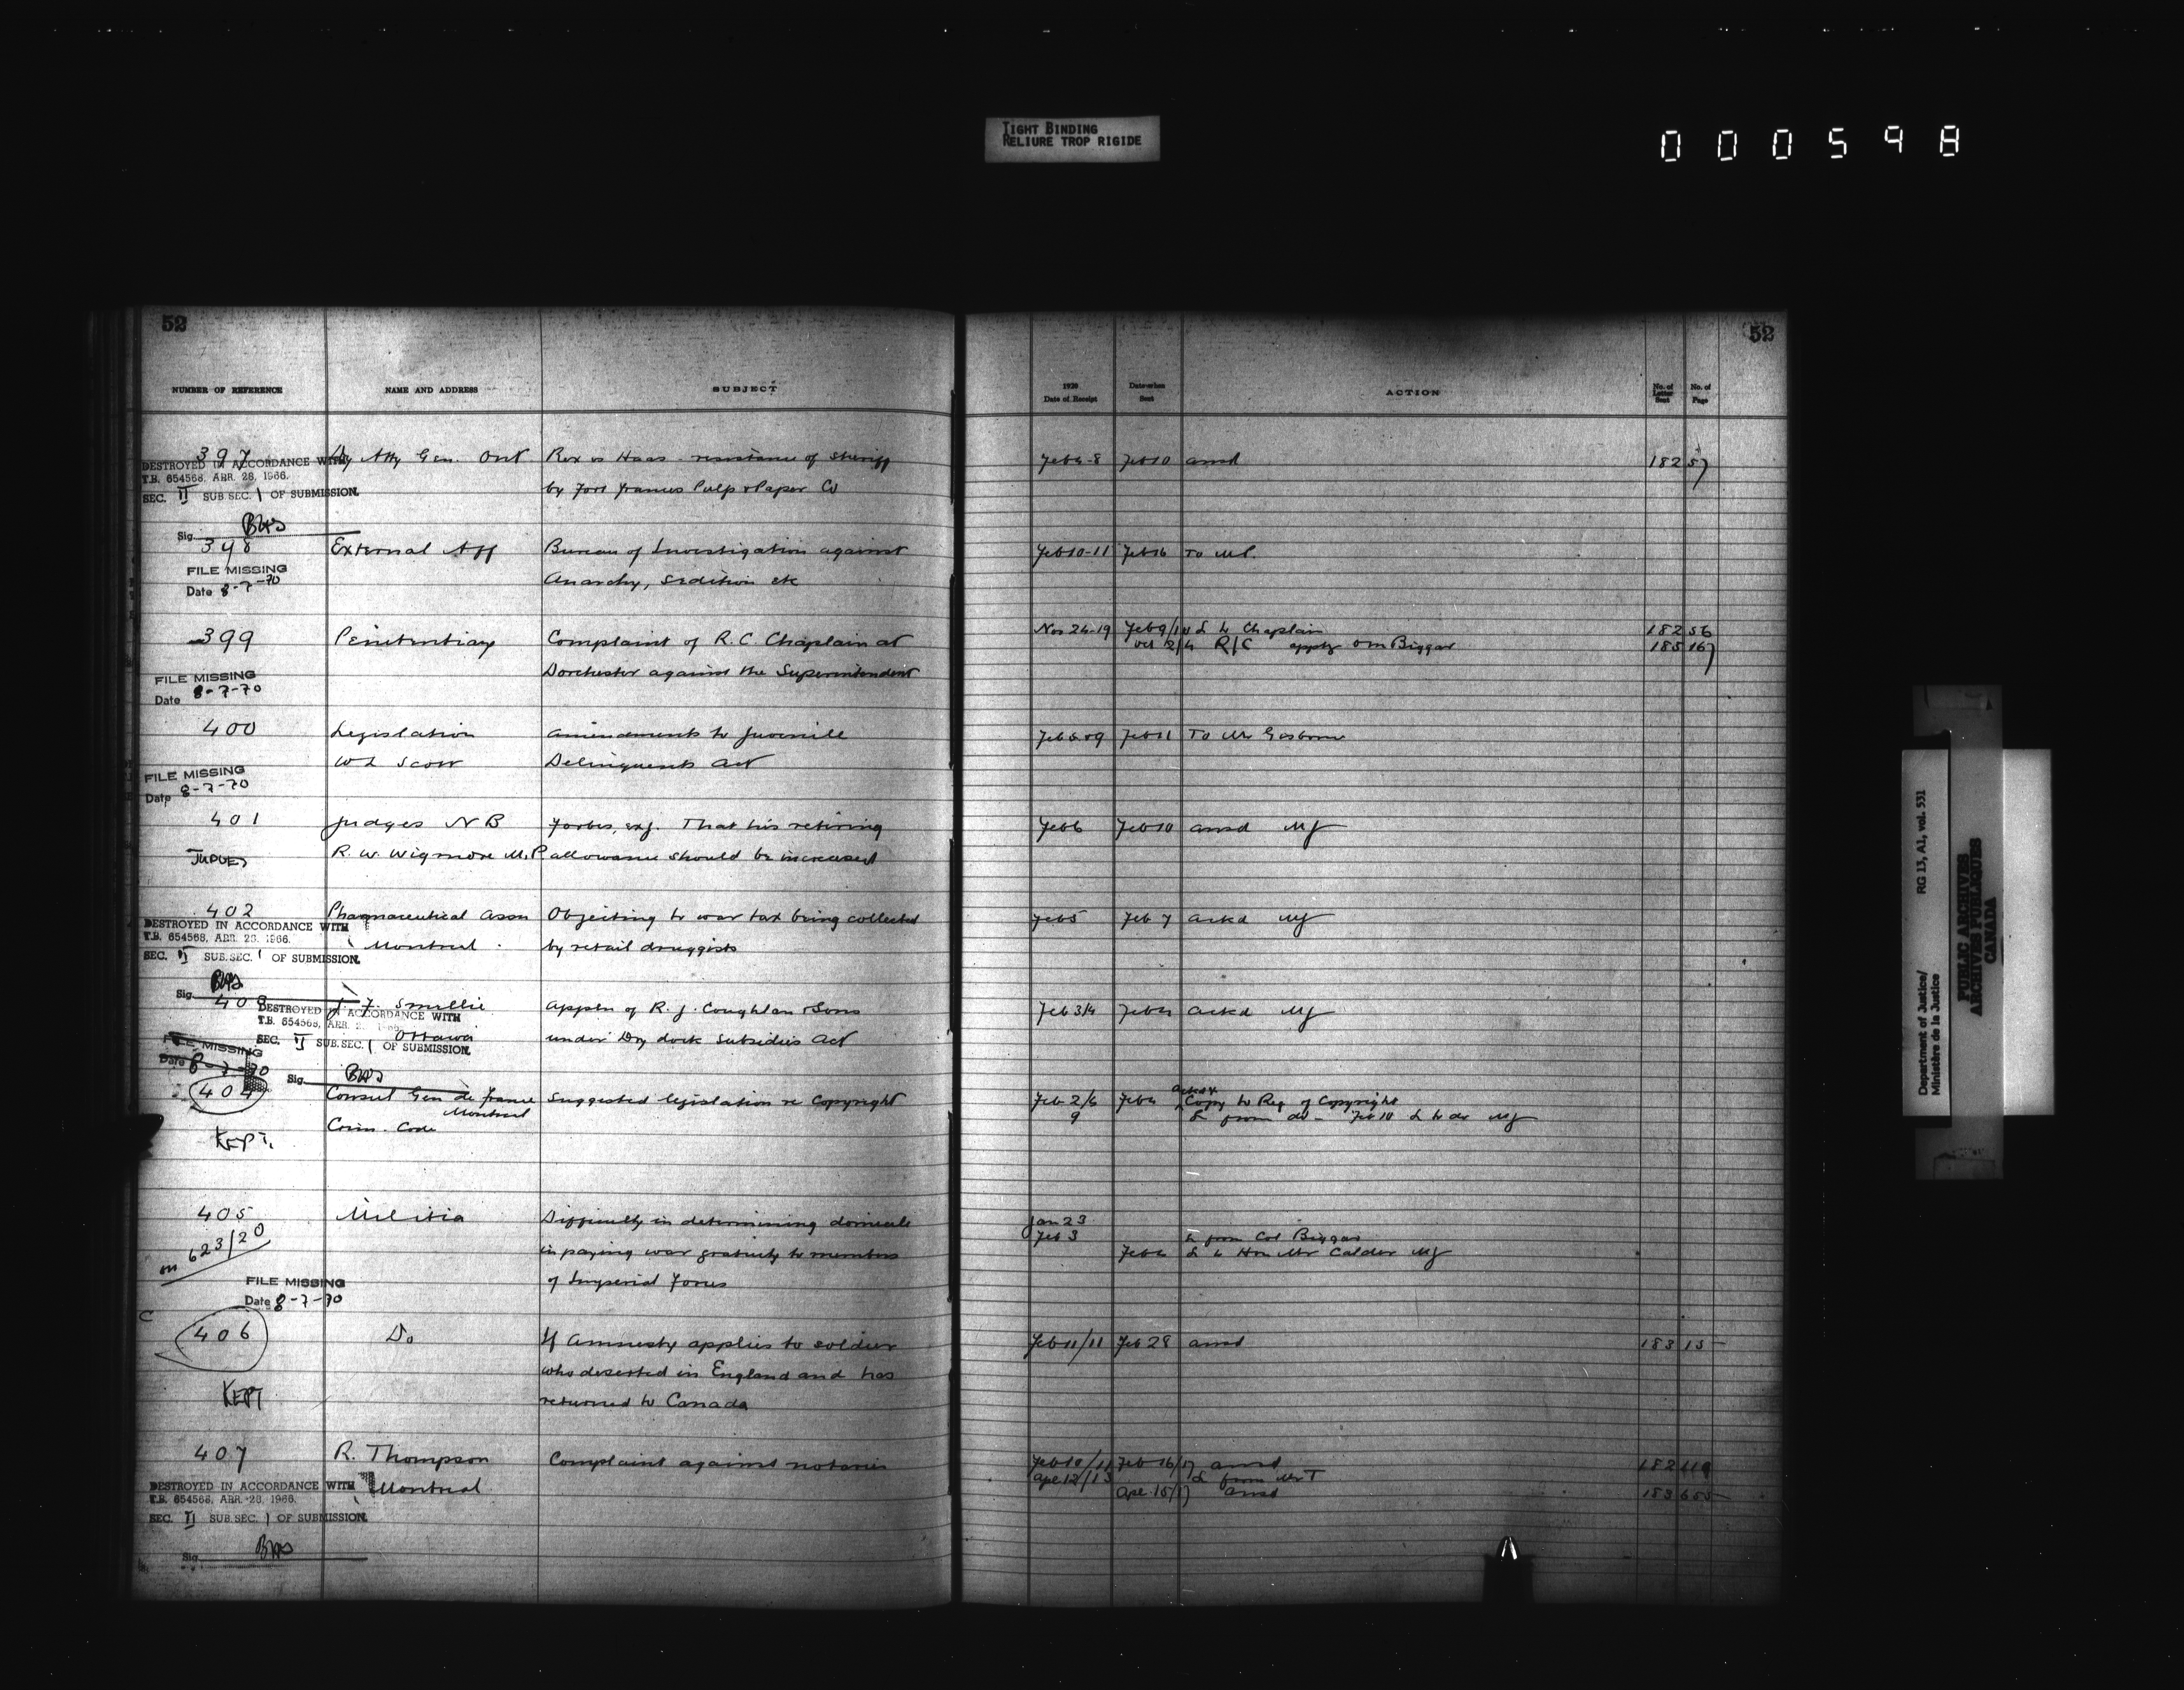 TIGHT BINDING
RELIURE TROP RIGIDE
000598
52
52
NUMBER OF REFERENCE NAME AND ADDRESS SUBJECT
1920 Date of Receipt Date when Sent ACTION No. of Letter Sent No. of Page
397 Dy Atty Gen. Ont Rex vs Haas - resistance of sheriff Feb 10 ansd 182 57
DESTROYED IN ACCORDANCE WITH
T.B. 654568, APR. 28, 1966.
SEC. II SUB. SEC. 1 OF SUBMISSION.
by Fort Frances Pulp & Paper Co
Sig.
398 External Aff Bureau of Investigation against Feb 10-11 Feb 16 To M.P.
FILE MISSING
Date 8-7-70
Anarchy, sedition etc
399 Penitentiary Complaint of R.C. Chaplain at Nov 24-19 L to Chaplain 182 56
R/C apptg O M Biggar 185 167
Dorchester against the Superintendent
FILE MISSING
Date 8-7-70
400 Legislation Amendments to Juvenile Feb 11 To Mr Gisborne
W L Scott Delinquents Act
FILE MISSING
Date 8-7-70
401 Judges N B Forbes, exj. That his retiring Feb 6 Feb 10 ansd MJ
JUDGES R. W. Wigmore M.P allowance should be increased
402 Pharmaceutical Assn Objecting to war tax being collected Feb 5 Feb 7 ackd MJ
DESTROYED IN ACCORDANCE WITH
T.B. 654568, APR. 28, 1966.
Montreal by retail druggists
SEC. II SUB. SEC. 1 OF SUBMISSION.
Sig.
403 J. F. Smellie Appln of R. J. Coughlan & Sons Feb 3/4 ackd MJ
DESTROYED IN ACCORDANCE WITH
T.B. 654568, APR.
Ottawa under Dry dock Subsidies Act
SEC. II SUB. SEC. 1 OF SUBMISSION.
FILE MISSING
Date 8-7-70
Sig.
404 Consul Gen de France Suggested legislation re Copyright Feb 2/6 ackd & Copy to Reg of Copyright
Montreal 9 L from do - Feb 10 L to do MJ
Crim. Code
KEPT.
405 Militia Difficulty in determining domicile Jan 23
Feb 3 L from Col Biggar
on 623/20 in paying war gratuity to members L to Hon Mr Calder MJ
of Imperial Forces
FILE MISSING
Date 8-7-70
C
406 Do If Amnesty applies to soldier Feb 11/11 Feb 28 ansd 183 15
who deserted in England and has
KEPT
returned to Canada
407 R. Thompson Complaint against notaries Feb 10/11 Feb 16/17 ansd 182 119
Apl 12/13 L from Mr T
Montreal Apl 15/17 ansd 183 655
DESTROYED IN ACCORDANCE WITH
T.B. 654568, APR. 28, 1966.
SEC. II SUB. SEC. 1 OF SUBMISSION.
Sig.
Department of Justice/ RG 13, A1, vol. 531
Ministère de la Justice
PUBLIC ARCHIVES
ARCHIVES PUBLIQUES
CANADA